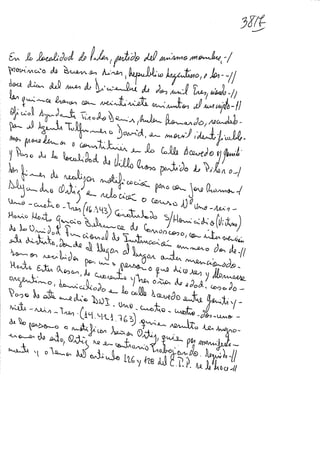 3817
En la localidad de Pilar, partido del mismo nombre, -/
provincia de Buenos Aires, República Argentina, a los --//
doce días del mes de Diciembre de dos mil Tres, siendo -//
las quince horas con veintisiete minutos el suscripto -//
Oficial Ayudante Tisado Damis, Rubén Bernardo, secundado-
por el Agente David, en movil identificable
nos procedemos a constituirnos en la calle Acevedo y
y Paso de la localidad de Villa Rosa partido de Pilar a -/
los fines de realizar notificación para con José Ramon -/
Alejandro Ortiz en relación a causa Nº Uno - seis -
uno - cuatro - Tres (16.143) Caratulada S/Homicidio (Vtma)
Maria Marta Garcia Belsunce de Carrascosa, con intervención
de la Unidad Funcional de Instrucción numero dos de -//
este distrito, donde al llegar al lugar antes mencionado.-
somos recibidos por una persona que dio ser y llamarse
de cuarenta y Tres años de edad, casado -
argentino, domiciliado en la calle Acevedo entre y -
Paso de este medio DNI. Uno - cuatro - cuatro - dos - uno -
siete - seis - Tres (14.421.763), quien resulta ser
de la persona a notificar Señor Ortiz, quien por
de esto, Ortiz se encontraria Trabajando.
mente y a Tenor del articulo 126 y 128 del C.P.P. se le hace -//